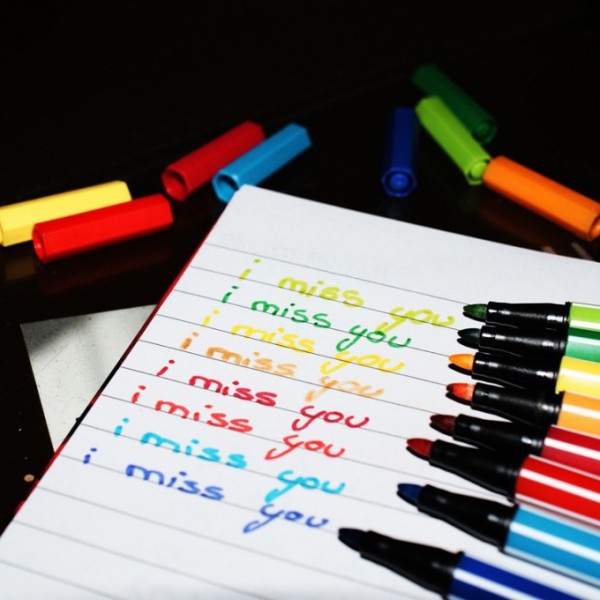 i miss you
i miss you
i miss you
i miss you
i miss you
i miss you
i miss you
i miss you